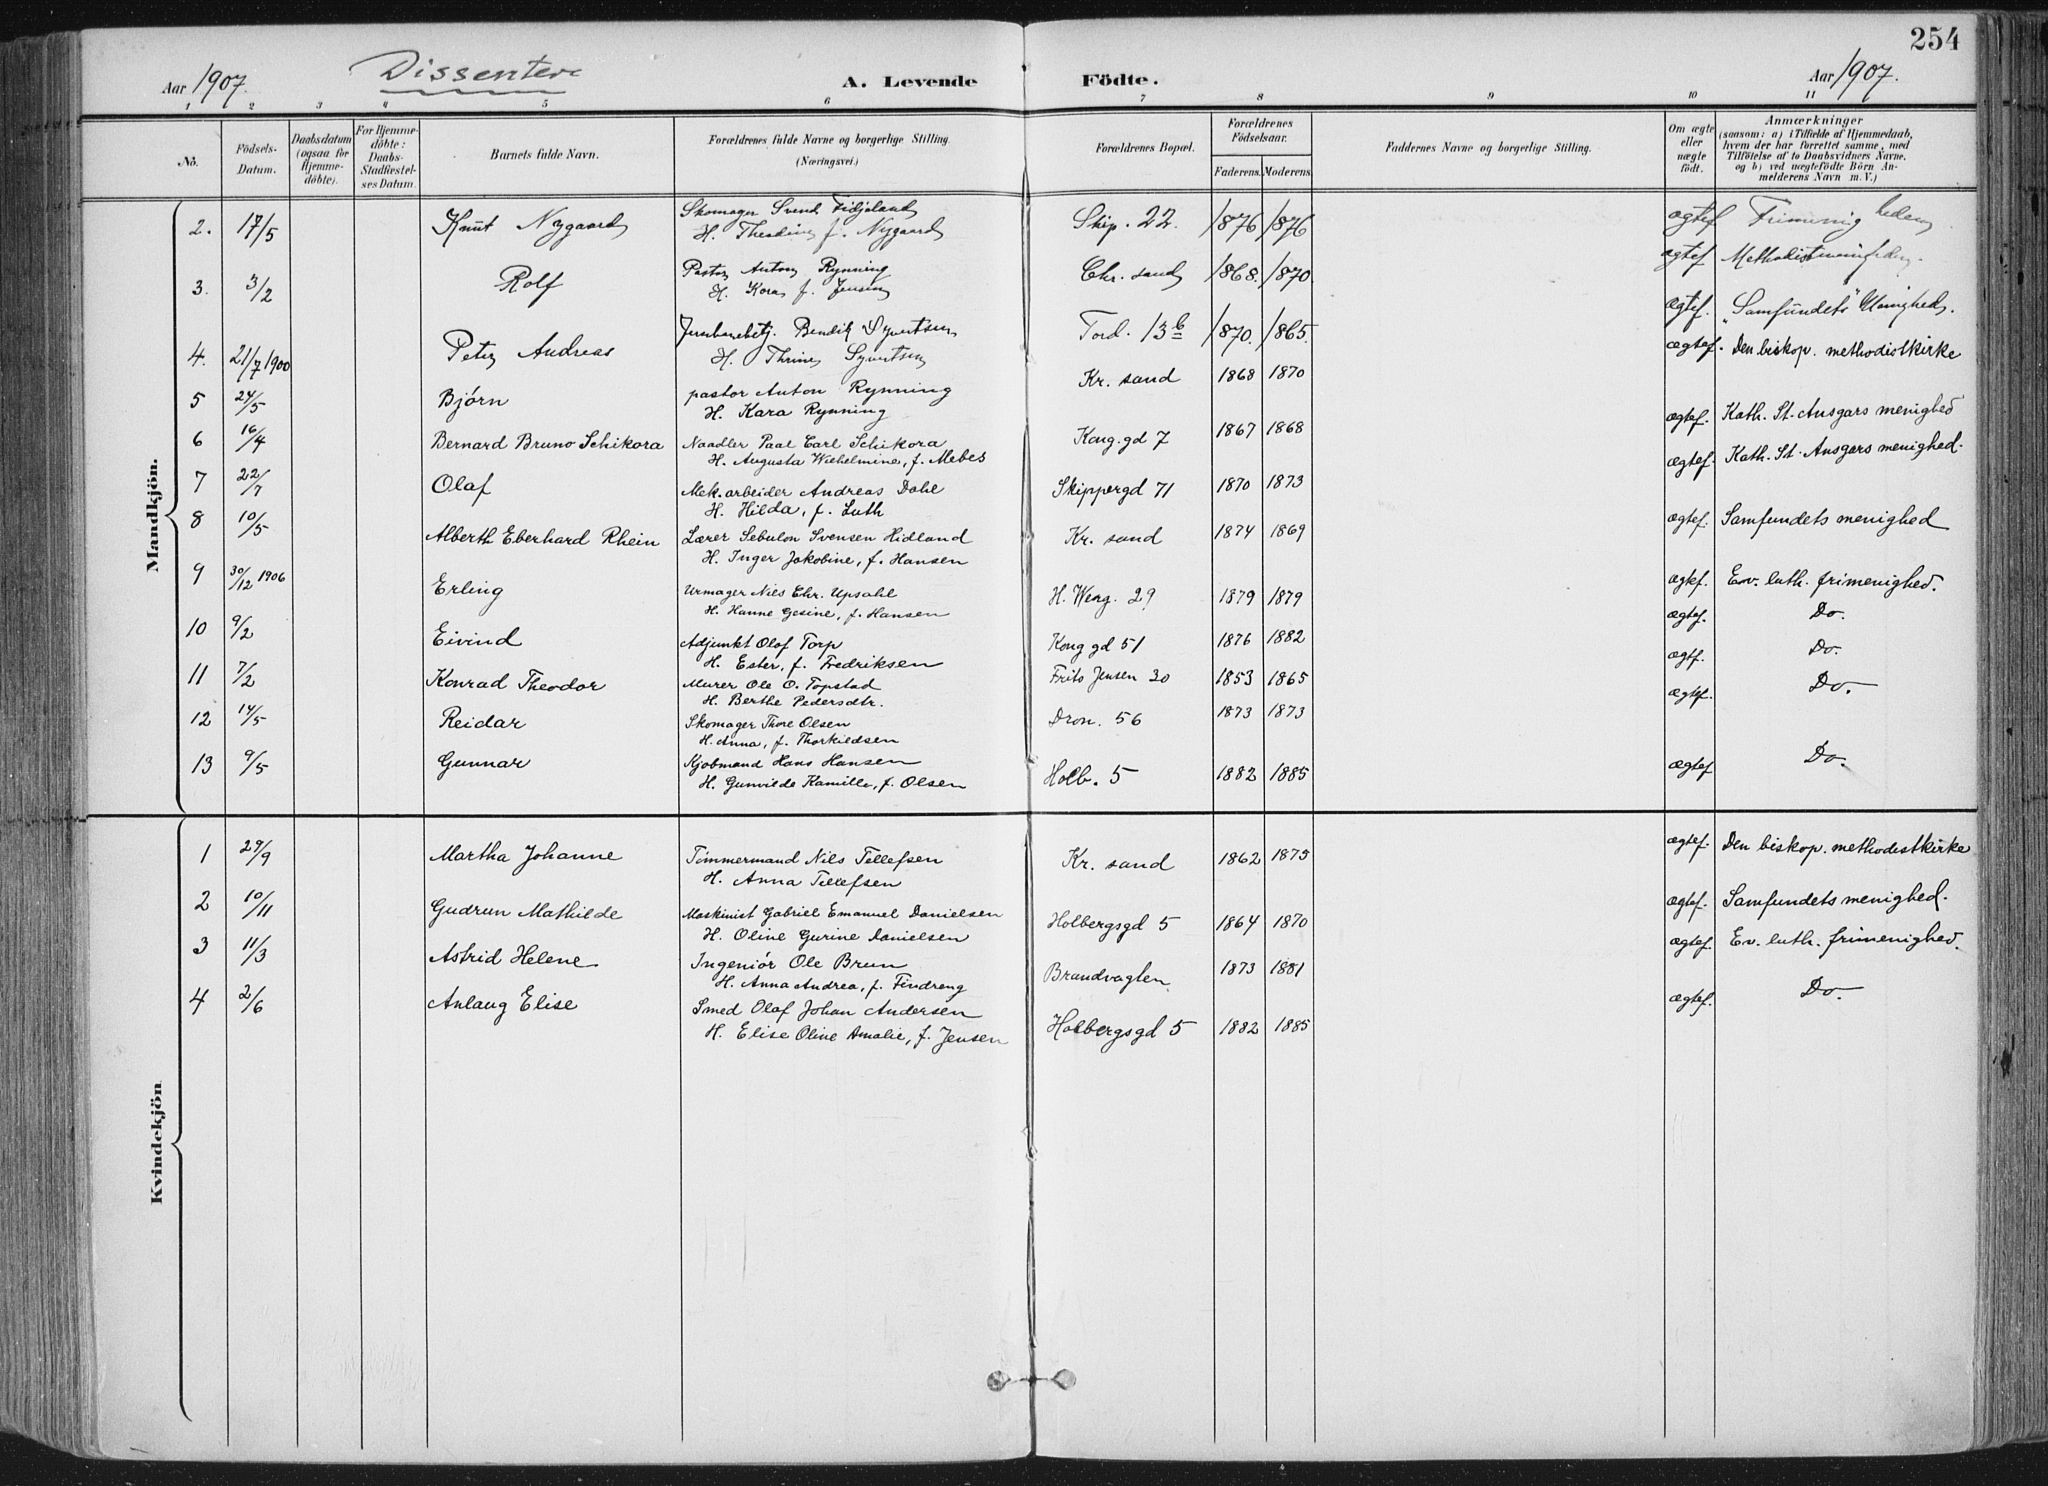 254
Aar 1907. Dissentere A. Levende Födte. Aar 1907.
1 2 3 4 5 6 7 8 9 10 11
No. Födsels-Datum. Daabsdatum (ogsaa for Hjemme-döbte). For Hjemme-döbte: Daabs-Stadfæstel-ses Datum. Barnets fulde Navn. Forældrenes fulde Navne og borgerlige Stilling. (Næringsvei.) Forældrenes Bopæl. Forældrenes Födselsaar. Faderens. Moderens. Faddernes Navne og borgerlige Stilling. Om ægte eller uægte födt. Anmærkninger (saasom: a) i Tilfælde af Hjemmedaab, hvem der har forrettet samme, med Tilföielse af to Daabsvidners Navne, og b) ved uægtefödte Börn An-melderens Navn m. V.)
Mandkjön.
2. 17/5 Knut Nygaard Skomager Svend Fidjeland Skip. 22. 1876 1876 ægtef Frimenigheden
H. Theodine f. Nygaard
3. 3/2 Rolf Pastor Anton Rynning Chr. sand 1868. 1870. ægtef Methodistmenigheden.
H. Kora f. Jensen
4. 21/7 1900 Peter Andreas Bendik Syvertsen Tord. 13b 1870. 1865. ægtef. "Samfundets" Menighed.
H. Thrine Syvertsen
5 24/5 Bjørn pastor Anton Rynning Kr. sand 1868 1870 ægtef. Den biskop. methodistkirke
H. Kara Rynning
6 16/4 Bernard Bruno Schikora Naadler Paal Carl Schikora Kong. gd 7 1867 1868 ægtef. Kath. St. Ansgars menighed
H. Augusta Wilhelmine, f. Mebes
7 22/7 Olaf Mek. arbeider Andreas Dahl Skippergd 71 1870 1873 ægtef. Kath. St. Ansgars menighed.
H. Hilda, f. Luth
8 10/5 Alberth Eberhard Rhein Lærer Sebulon Svensen Hidland Kr. sand 1874 1869 ægtef. Samfundets menighed
H. Inger Jakobine, f. Hansen
9 30/12 1906 Erling Urmager Nils Chr. Upsahl H. Werg. 29 1879 1879 ægtef. Ev. luth. frimenighed.
H. Hanne Gesine, f. Hansen
10 9/2 Eivind Adjunkt Olaf Torp Kong gd 51 1876 1882 ægtef. Do.
H. Ester, f. Fredriksen
11 7/2 Konrad Theodor Murer Ole O. Topstad Frits Jensen 30 1853 1865 ægtf. Do.
H. Berthe Pedersdtr.
12 14/5 Reidar Skomager Thore Olsen Dron. 56 1873 1873 ægtef. Do.
H. Anna, f. Thorkildsen
13 9/5 Gunnar Kjøbmand Hans Hansen Holb. 5 1882 1885 ægtef Do.
H. Gunvilde Kamilla, f. Olsen
Kvindekjön
1 29/9 Martha Johanne Tømmermand Nils Tellefsen Kr. sand 1862 1875 ægtef. Den biskop. methodistkirke
H. Anna Tellefsen
2 10/11 Gudrun Mathilde Maskinist Gabriel Emanuel Danielsen Holbergsgd 5 1864 1870 ægtef. Samfundets menighed.
H. Oline Gurine Danielsen
3 11/3 Astrid Helene Ingeniør Ole Brun Brandvagten 1873 1881 ægtef. Ev. luth. frimenighed.
H. Anna Andrea, f. Findreng
4 2/6 Anlaug Elise Smed Olaf Johan Andersen Holbergsgd 5 1882 1885 ægtef. Do.
H. Elise Oline Amalie, f. Jensen